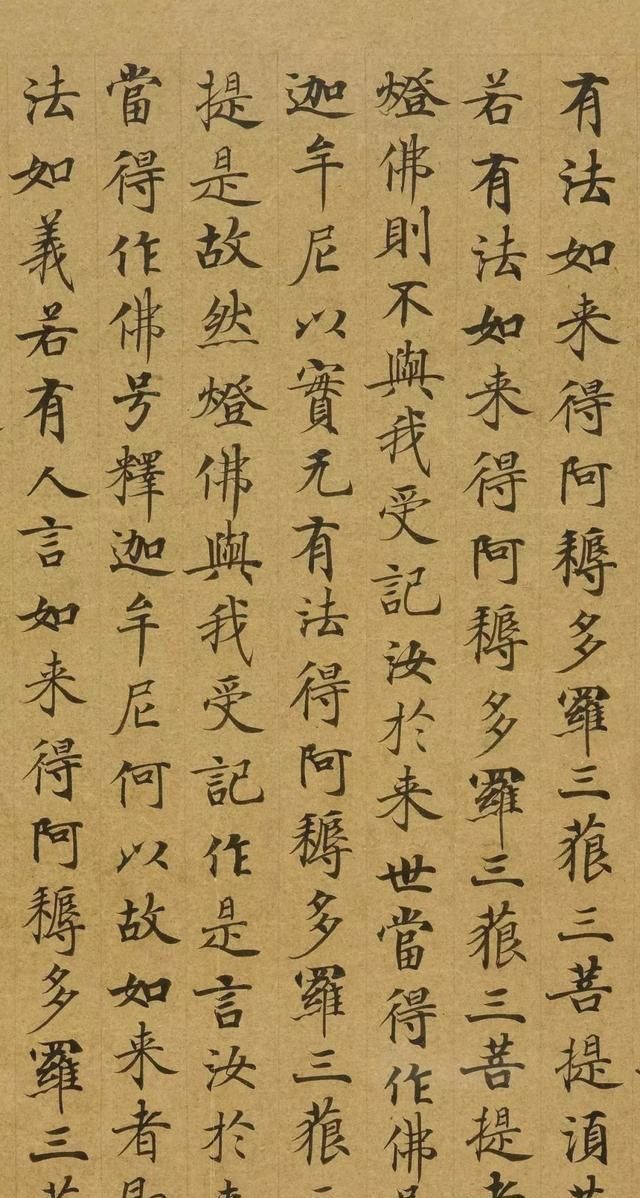 有法如来得阿耨多羅三藐三菩提須
若有法如来得阿耨多羅三藐三菩提者
燈佛則不與我受記汝於来世當得作佛
迦牟尼以實无有法得阿耨多羅三藐
提是故然燈佛與我受記作是言汝於
當得作佛号釋迦牟尼何以故如来者即
法如義若有人言如来得阿耨多羅三